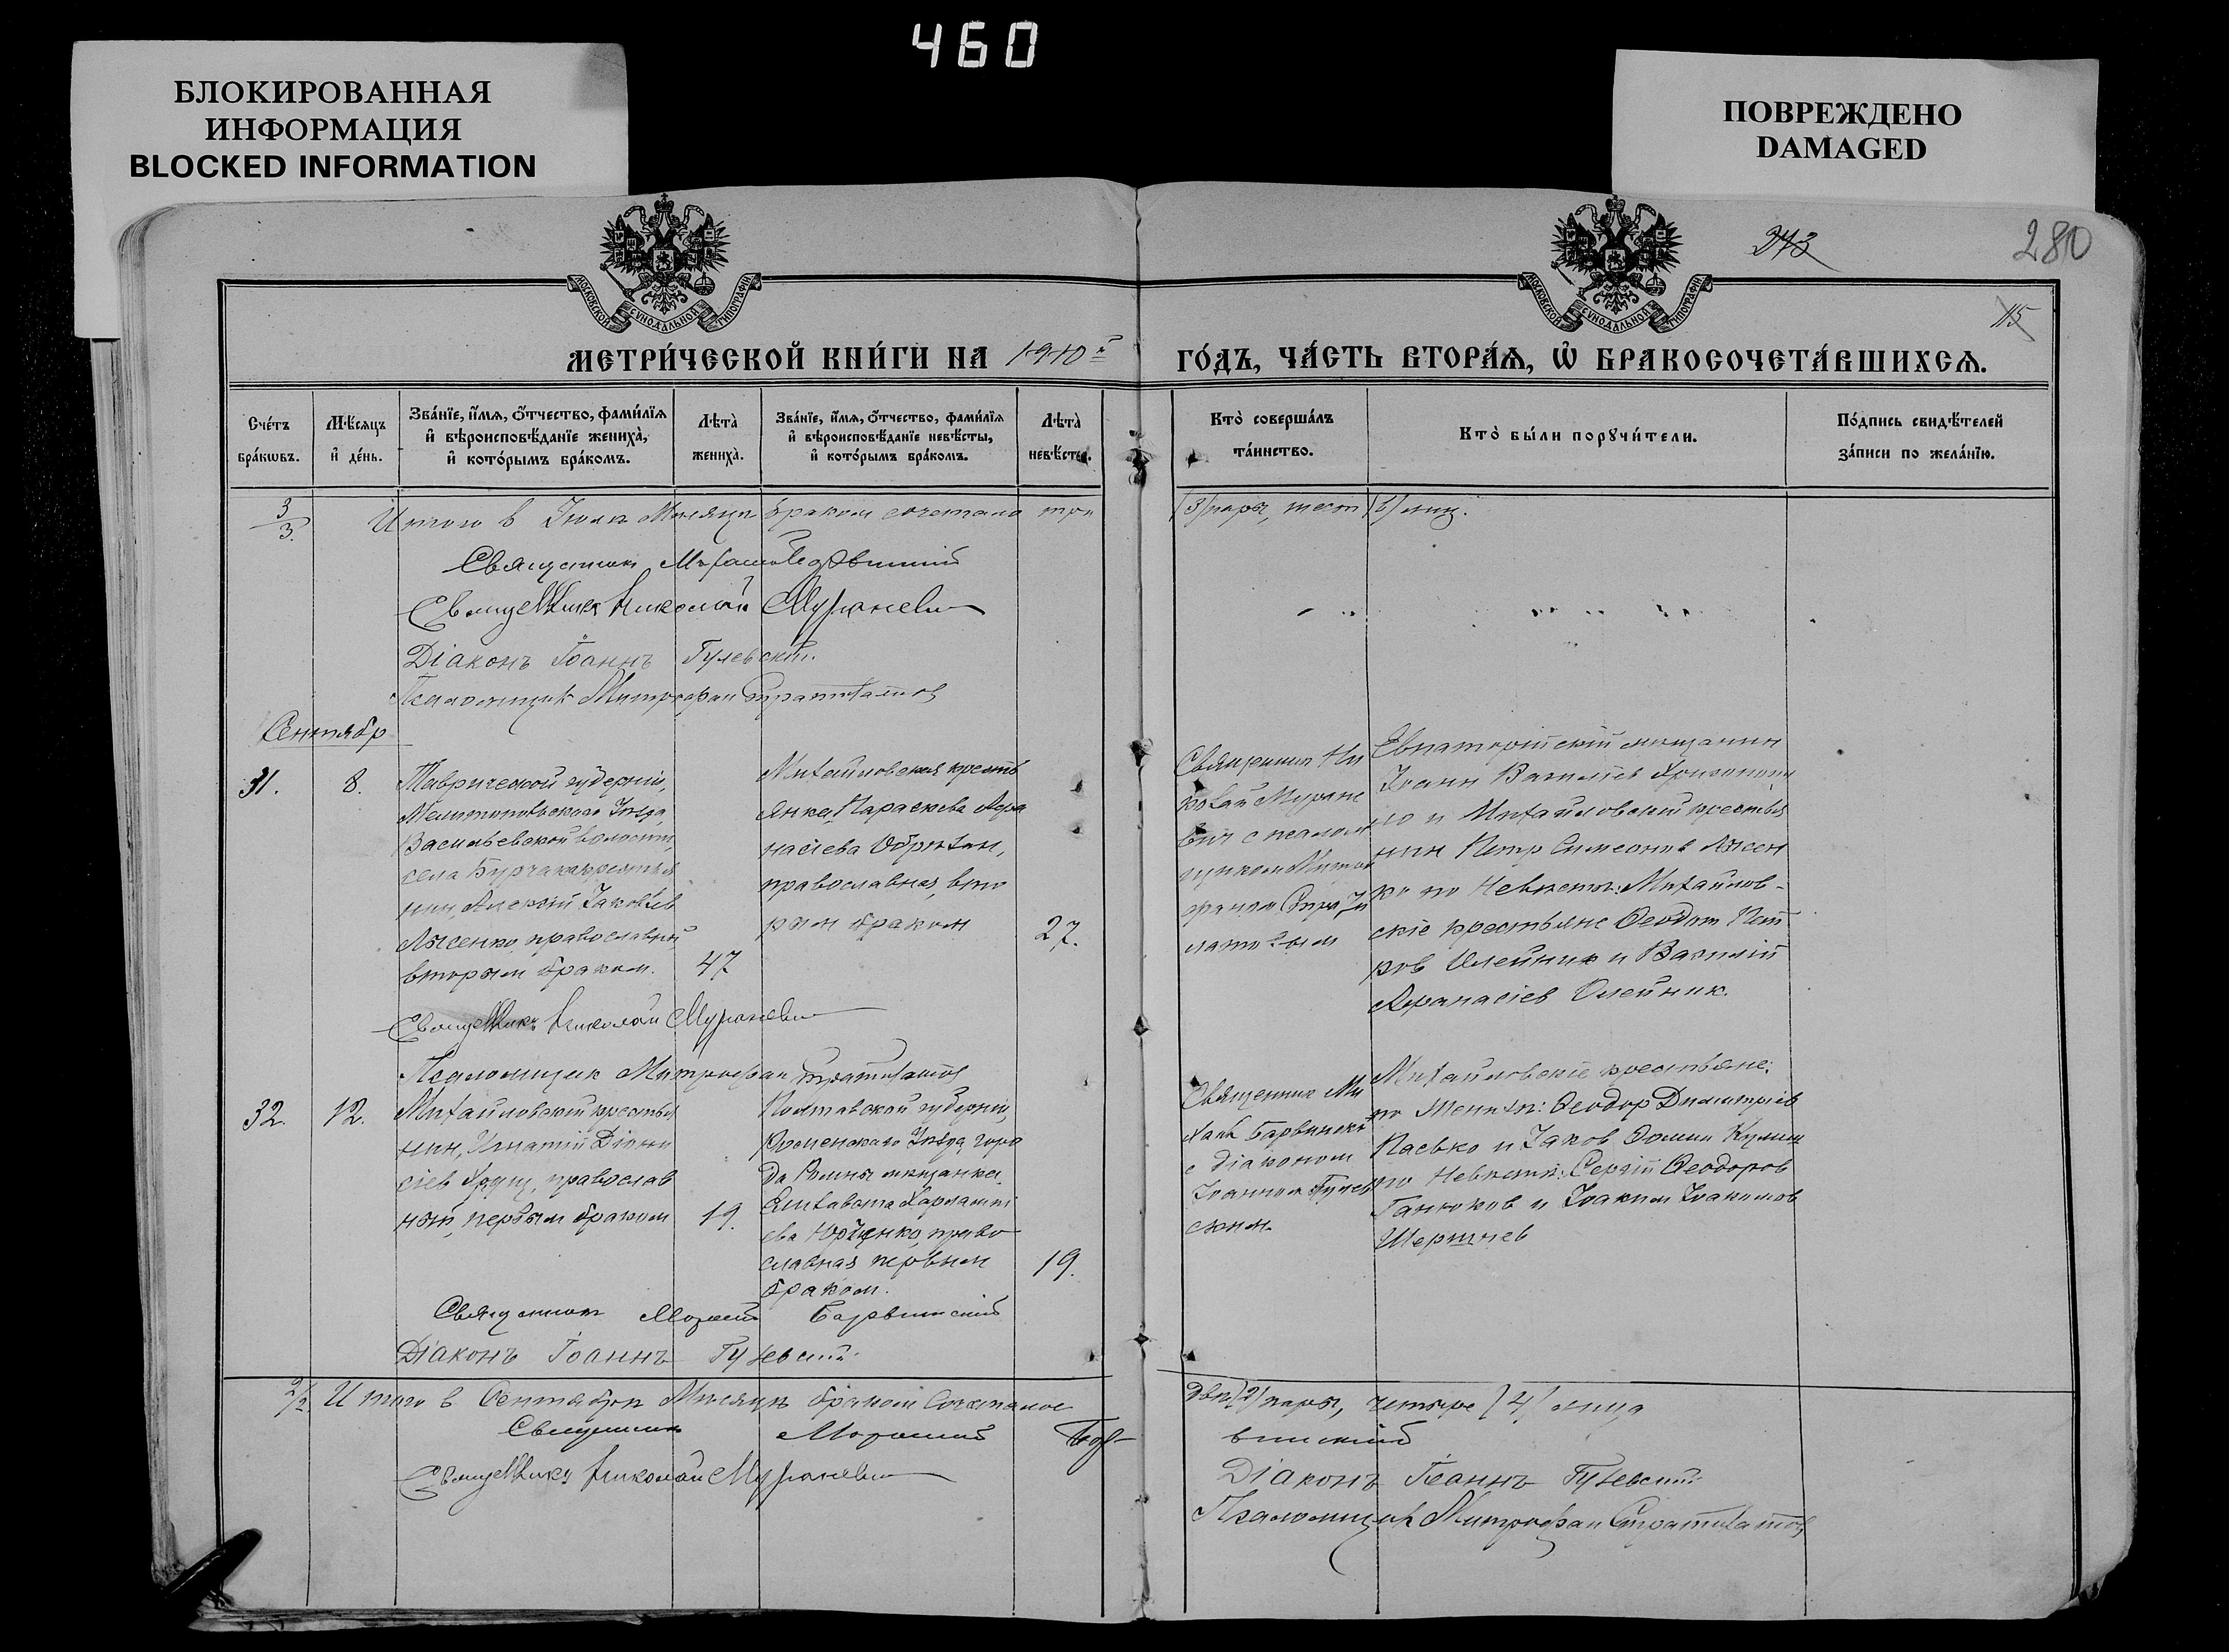 460
БЛОКИРОВАННАЯ
ИНФОРМАЦИЯ
BLOCKED INFORMATION
ПОВРЕЖДЕНО
DAMAGED
МОСКОВСКОЙ СѴНОДАЛЬНОЙ ТИПОГРАФІИ
МОСКОВСКОЙ СѴНОДАЛЬНОЙ ТИПОГРАФІИ
273
280
115
МЕТРИ́ЧЕСКОЙ КНИ́ГИ НА 1910 г
ГО́ДЪ, ЧА́СТЬ ВТОРА́Ѧ, Ѡ҆ БРАКОСОЧЕТА́ВШИХСѦ.
Сче́тъ
бра́кωвъ.
Мѣ́сяцъ
и҆ де́нь.
Зва́нїе, и҆́мѧ, ѻ҆́тчество, фами́лїѧ
и҆ вѣроисповѣ́данїе жениха̀,
и҆ кото́рымъ бра́комъ.
Лѣта̀
жениха̀.
Зва́нїе, и҆́мѧ, ѻ҆́тчество, фами́лїѧ
и҆ вѣроисповѣ́данїе невѣ́сты,
и҆ кото́рымъ бра́комъ.
Лѣта̀
невѣ́сты.
Кто̀ соверша́лъ
та́инство.
Кто̀ бы́ли порꙋчи́тели.
По́дпись свидѣ́телей
за́писи по жела́нїю.
3
3.
Итого в Іюлѣ Мѣсяцѣ браком сочетало три
(3) пары, шест (6) лиц.
Священник
Священникъ Николай Мураневич
Діаконъ Іоаннъ Гулевскій.
Псаломщик Митрофан Стратилатов
Сентябр
31.
8.
Таврической губерніи,
Мелитопольскаго Уѣзда,
Васильевской волости,
села Бурчака крестья
нин, Алексій Іаковлев
Лысенко, православный
вторым браком.
47
Михайловская кресть
янка, Параскева Афа
насіева
православная, вто
рым браком
27.
Священник Ни
колай Муране
вич с псалом
щиком Митро
фаном Стра
латовым
Евпаторійскій мещанин
Іоанн Василіев
но и Михайловскій крестья
нин Петр Симеонов Лысен
ко по Невѣстѣ: Михайлов-
скіе крестьяне Феодот Пет
ров Олейник и Василій
Афанасіев Олейник.
Священникъ Николай Мураневич
Псаломщик Митрофан Стратилатов
32.
12.
Михайловскій крестья
нин, Игнатій Діони
сіев Хрущ, православ
ный, первым браком
19.
Полтавской губерніи,
Роменскаго Уѣзда, горо
да Ромны мещанка,
Елисавета Харлампі
ева Юрченко, право
славная первым
браком.
19.
Священник Ми
хаил Барвинскі
с діаконом
Іоанном Гулев
ским.
Михайловскіе крестьяне:
по Женихѣ: Феодор Димитріев
Пасько и Іаков Фомин
по Невѣстѣ: Сергій Феодоров
Ганюков и Іоаким Іоакимов
Шершнев
Священник Барвинский
Діаконъ Іоаннъ Гулевскій
2/2
Итого в Сентябрѣ Мѣсяцѣ браком сочеталос
двѣ (2) пары, четыре (4) лица
Священник
Бар-
винский
Священникъ Николай Мураневич
Діаконъ Іоаннъ Гулевскій
Псаломщик Митрофан Стратилатов